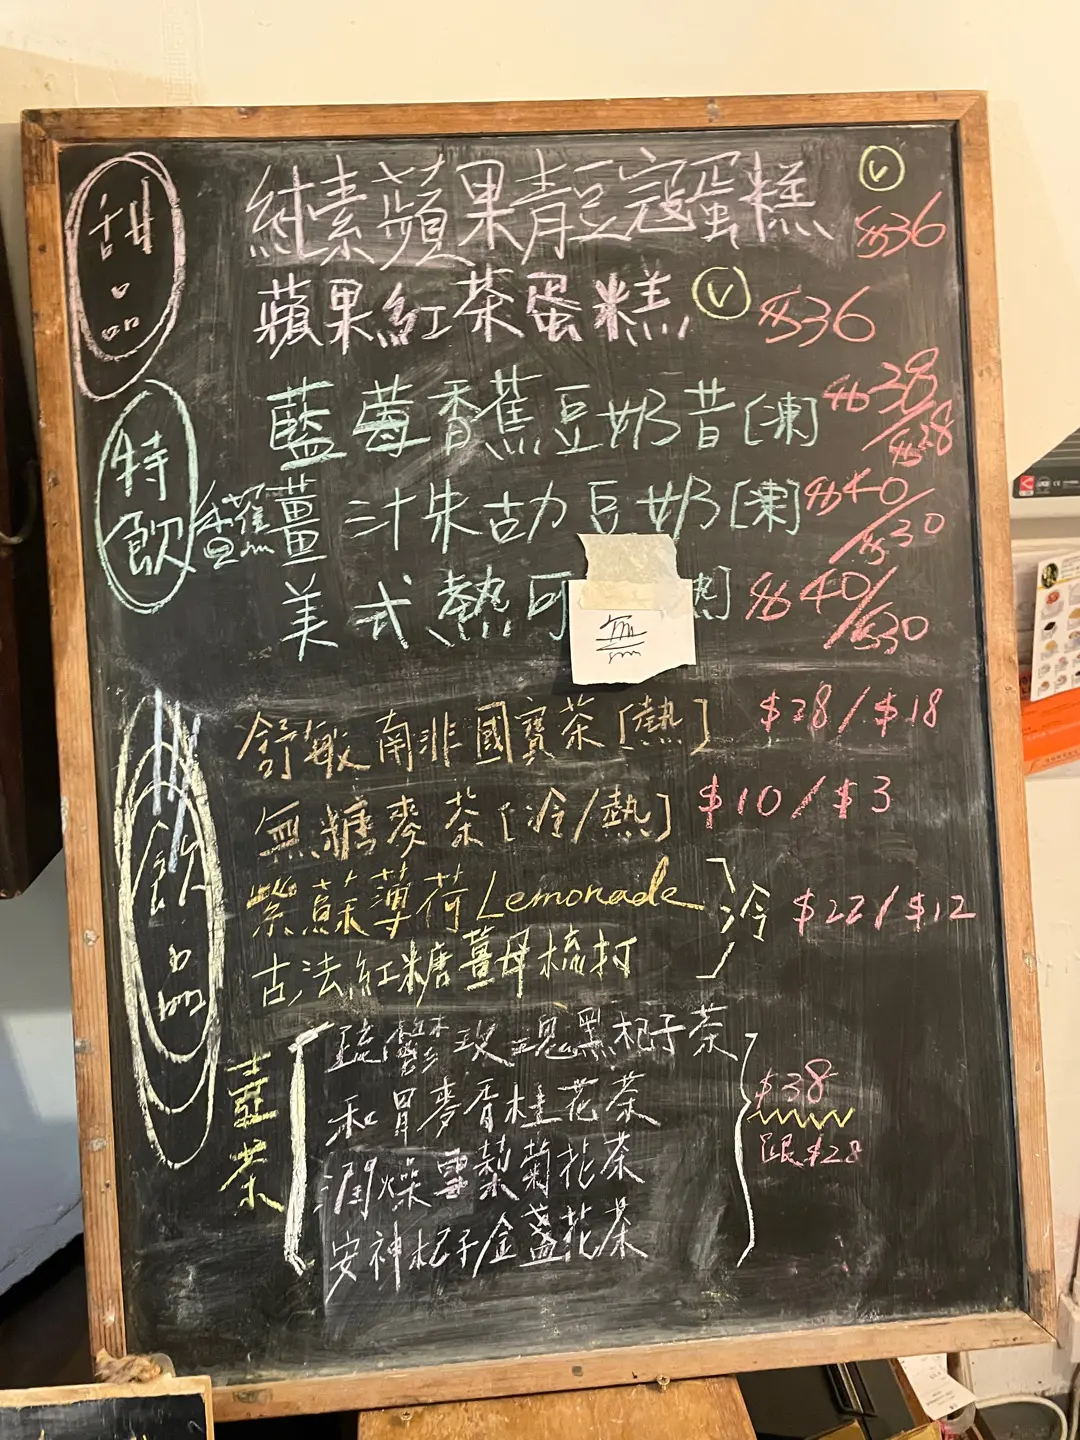 甜品
純素蘋果青豆寇蛋糕 V $36
蘋果紅茶蛋糕 V $36
特飲
藍莓香蕉豆奶昔[凍] $38/$28
薑汁朱古力豆奶[凍] $40/$30
美式熱可 熱] $40/$30
無
飲品
舒敏南非國寶茶[熱] $28/$18
無糖麥茶[冷/熱] $10/$3
紫蘇薄荷Lemonade
古法紅糖薑母梳打
冷 $22/$12
壺茶
疏鬱玫瑰黑杞子茶
和胃麥香桂花茶
潤燥雪梨菊花茶
安神杞子金盞花茶
$38
跟$28